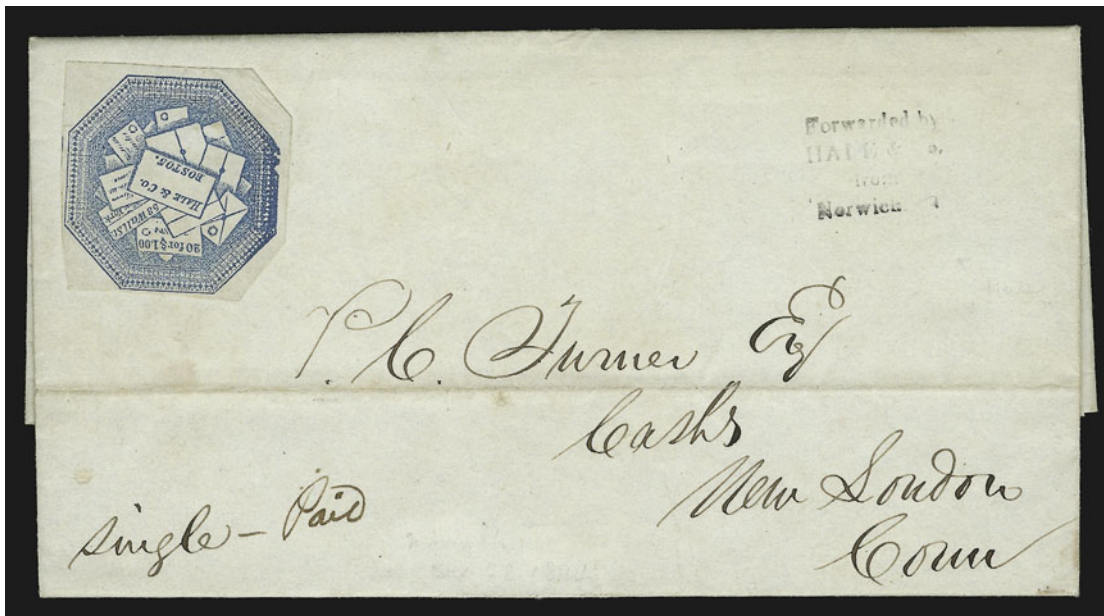 HALE & CO.
BOSTON.
68 Wall St.
20 for $1.00
Forwarded by
HALE & Co.
from
Norwich
P. C. Turner Esq
Cashr
New London
Conn
single - Paid